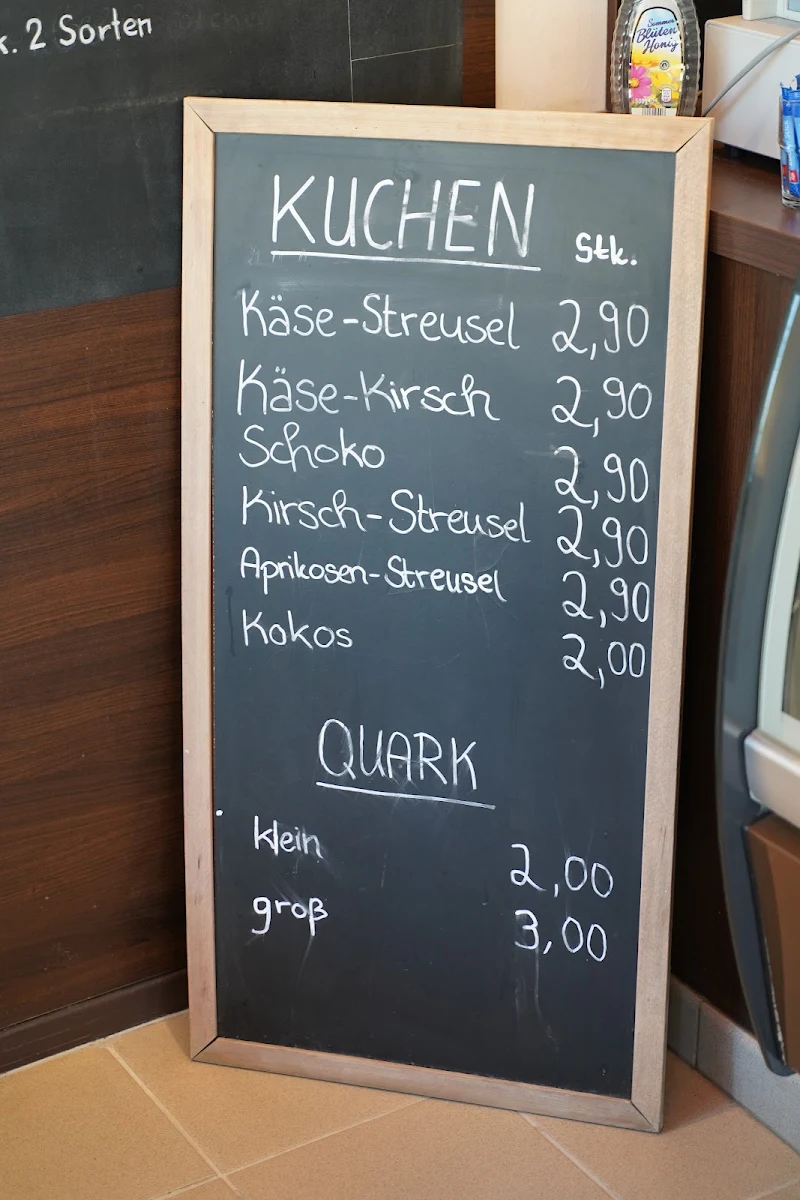 k. 2 Sorten
Sommer
Blüten
Honig
KUCHEN Stk.
Käse-Streusel 2,90
Käse-Kirsch 2,90
Schoko 2,90
Kirsch-Streusel 2,90
Aprikosen-Streusel 2,90
Kokos 2,00
QUARK
klein 2,00
groß 3,00